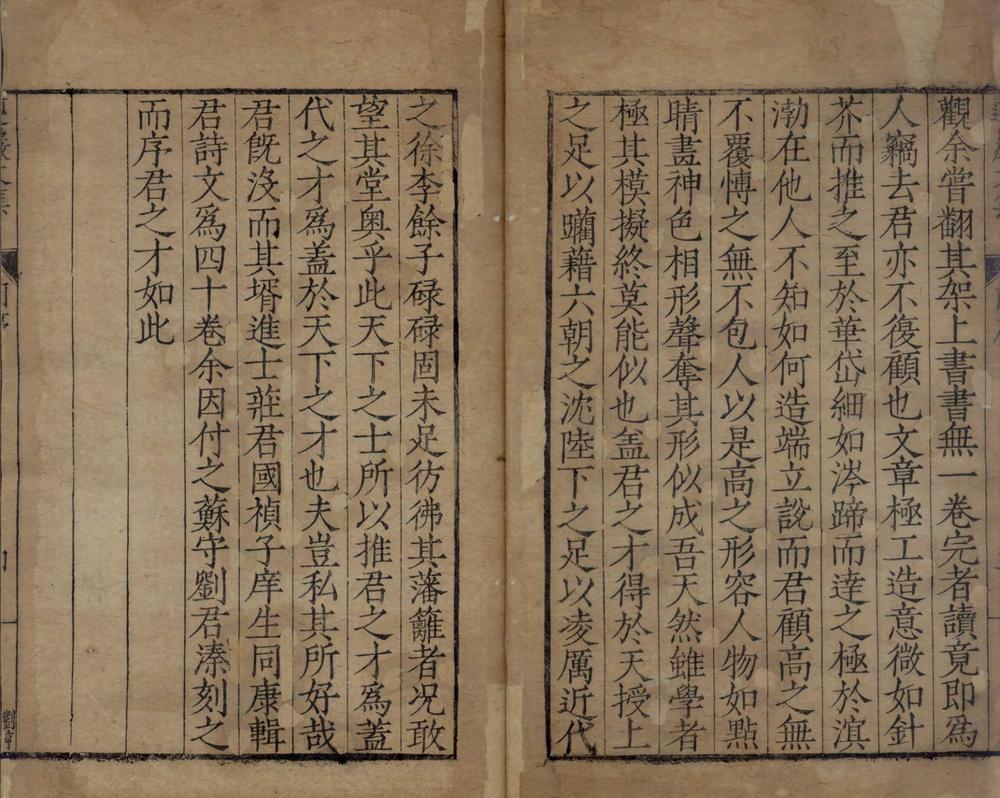 觀余嘗翻其架上書書無一卷完者讀竟即爲
人竊去君亦不復顧也文章極工造意微如針
芥而推之至於華岱細如涔蹄而達之極於溟
渤在他人不知如何造端立說而君顧高之無
不覆慱之無不包人以是高之形容人物如點
睛畫神色相形聲奪其形似成吾天然雖學者
極其模擬終莫能似也盖君之才得於天授上
之足以躪藉六朝之沈陸下之足以凌厲近代
之徐李餘子碌碌固未足彷彿其藩籬者况敢
望其堂奧乎此天下之士所以推君之才爲蓋
代之才爲盖於天下之才也夫豈私其所好哉
君旣沒而其壻進士莊君國禎子庠生同康輯
君詩文爲四十卷余因付之蘇守劉君溱刻之
而序君之才如此